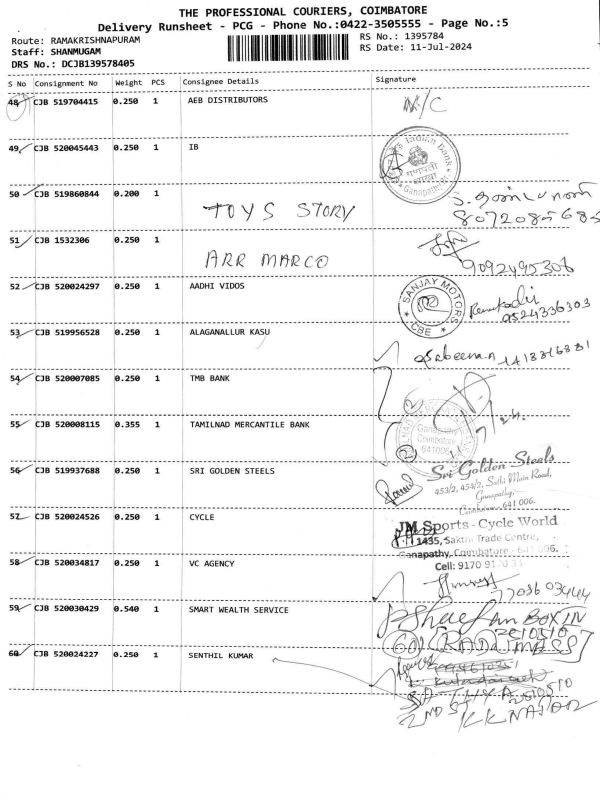 THE PROFESSIONAL COURIERS, COIMBATORE
Delivery Runsheet - PCG - Phone No.:0422-3505555 - Page No.:5
Route: RAMAKRISHNAPURAM
RS No.: 1395784
Staff: SHANMUGAM
RS Date: 11-Jul-2024
DRS No.: DCJB139578405
S No Consignment No Weight PCS Consignee Details Signature
48 CJB 519704415 0.250 1 AEB DISTRIBUTORS N/C
49 CJB 520045443 0.250 1 IB
Indian Bank
गणपती
शाखा
Ganapathy
50 CJB 519860844 0.200 1 TOYS STORY
8072085685
51 CJB 1532306 0.250 1 ARR MARCO
9092495306
52 CJB 520024297 0.250 1 AADHI VIDOS
SANJAY MOTORS
CBE
9524336303
53 CJB 519956528 0.250 1 ALAGANALLUR KASU
Sabeena.A
54 CJB 520007085 0.250 1 TMB BANK
55 CJB 520008115 0.355 1 TAMILNAD MERCANTILE BANK
Ganapathy
Coimbatore
641006
56 CJB 519937688 0.250 1 SRI GOLDEN STEELS
Sri Golden Steels
453/2, 454/2, Sathi Main Road,
Ganapathy,
Coimbatore - 641 006.
57 CJB 520024526 0.250 1 CYCLE
JM Sports - Cycle World
1435, Sakthi Trade Centre,
Ganapathy, Coimbatore - 641 006.
Cell: 9170 9170 33
58 CJB 520034817 0.250 1 VC AGENCY
59 CJB 520030429 0.540 1 SMART WEALTH SERVICE
BOX IN
60 CJB 520024227 0.250 1 SENTHIL KUMAR
2510510
2ND ST KK NAGAR